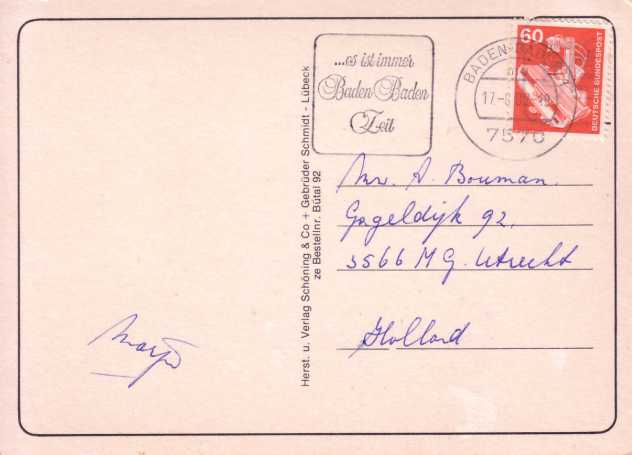 ...es ist immer
Baden-Baden
Zeit
60
DEUTSCHE BUNDESPOST
BADEN-BADEN
17-8
7570
Mr. A. Bouman.
Gageldijk 92,
3566 MG. Utrecht
Holland
Herst. u. Verlag Schöning & Co + Gebrüder Schmidt - Lübeck
ze Bestellnr. Bütal 92